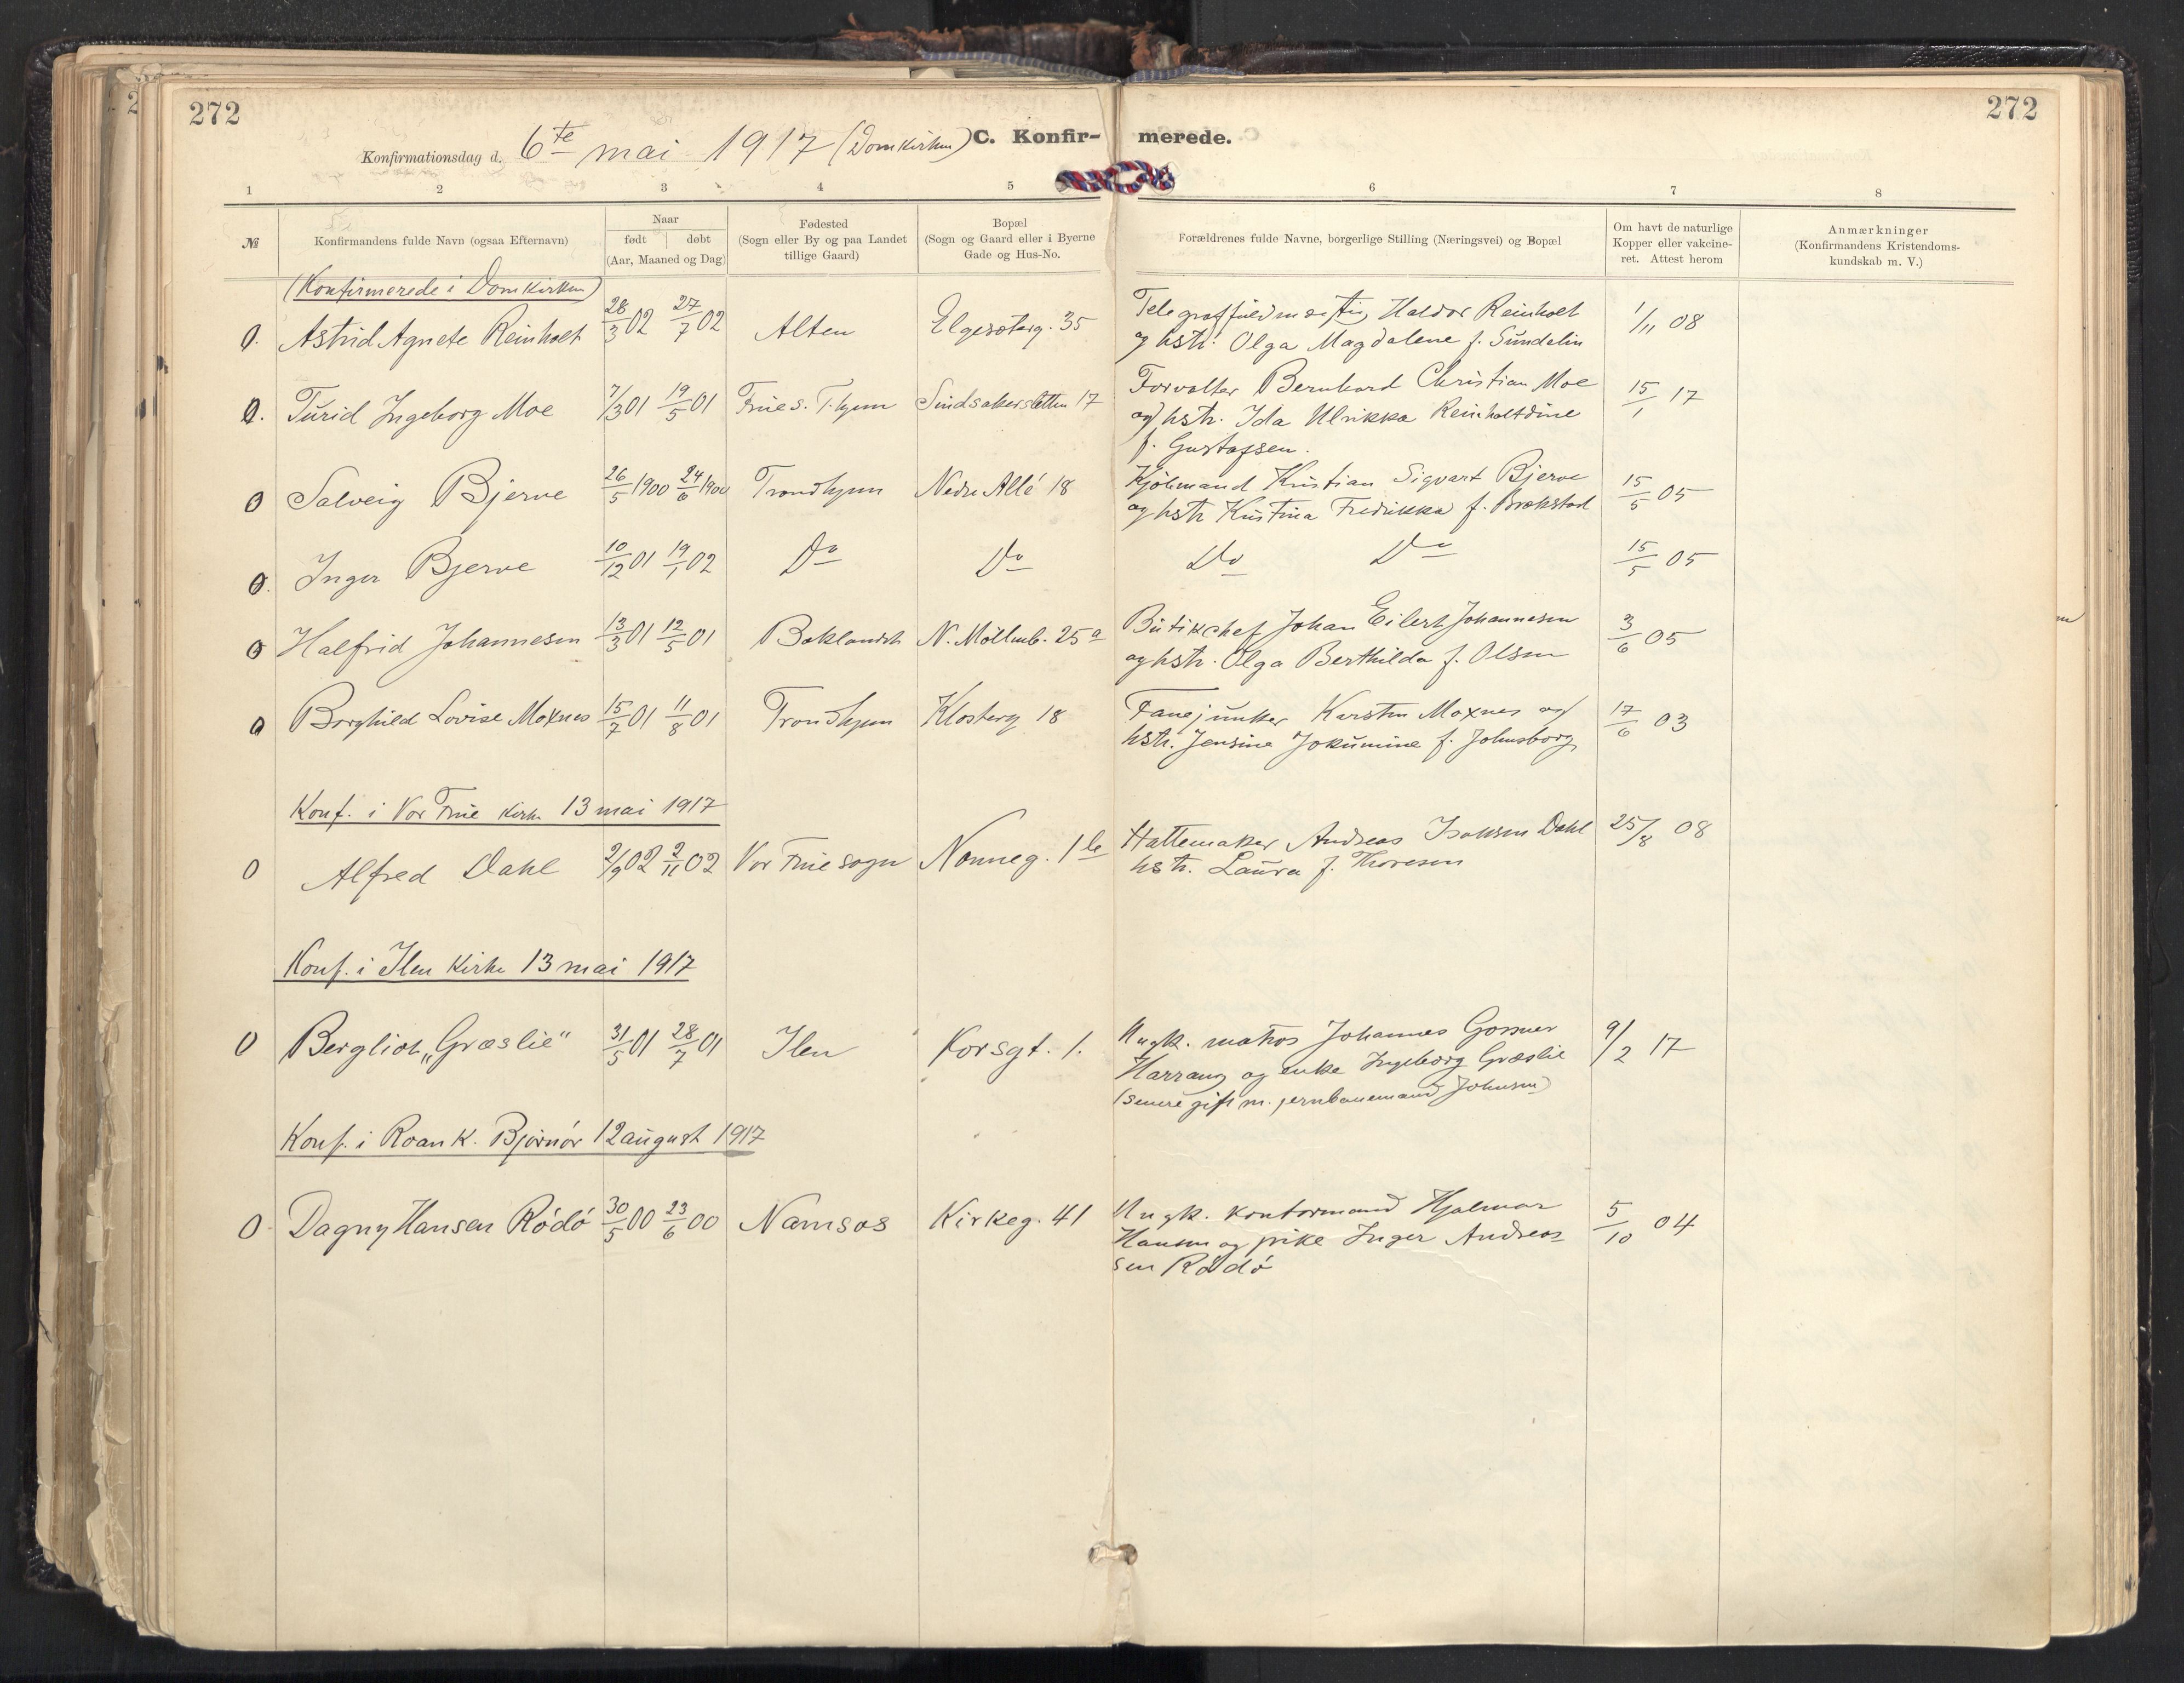 272
272
Konfirmationsdag d. 6te mai 1917 (Domkirken) C. Konfir- merede.
1 2 3 4 5 6 7 8
№
Konfirmandens fulde Navn (ogsaa Efternavn)
Naar
født døbt
(Aar, Maaned og Dag)
Fødested
(Sogn eller By og paa Landet
tillige Gaard)
Bopæl
(Sogn og Gaard eller i Byerne
Gade og Hus-No.
Forældrenes fulde Navne, borgerlige Stilling (Næringsvei) og Bopæl
Om havt de naturlige
Kopper eller vakcine-
ret. Attest herom
Anmærkninger
(Konfirmandens Kristendoms-
kundskab m. V.)
(Konfirmerede i Domkirken)
0. Astrid Agnete Reinholt 28/3 02 27/7 02 Alten Elgesæterg. 35 Haldor Reinholt 1/11 08
og hstr. Olga Magdalene f. Sundelin
0. Turid Ingeborg Moe 7/3 01 19/5 01 Frue s. T.hjem 17 Forvalter Bernhard Christian Moe 15/1 17
og hstr. Ida Ulrikka Reinholtdine
f. Gustafsen.
0 Solveig Bjerve 26/5 1900 24/6 1900 Trondhjem Nedre Allé 18 Kjølmand Kristian Sigvart Bjerve 15/5 05
og hstr Kristina Fredrikka f. Brækstad
0. Inger Bjerve 10/12 01 19/1 02 Do Do Do Do 15/5 05
0 Halfrid Johannesen 13/3 01 12/5 01 Baklandet N. Möllenb. 25a Butikchef Johan Eilert Johannesen 3/6 05
og hstr. Olga Berthilda f. Olsen
0 Borghild Lovise Moxnes 15/7 01 11/8 01 Trondhjem Klosterg 18 Fanejunker Karsten Moxnes og 17/6 03
hstr. Jensine Jokumine f. Johnsborg
Konf. i Vor Frue Kirke 13 mai 1917
0 Alfred Dahl 2/9 02 2/11 02 Vor Frue sogn Nonneg. 1b Hattemaker Andreas Isaksen Dahl 25/8 08
hstr. Laura f. Thoresen
Konf. i Ilen Kirke 13 mai 1917
0 Bergliot „Græslie" 31/5 01 28/7 01 Ilen Korsgt. 1. Ungk. matros Johannes 9/2 17
Harrang og enke Ingeborg Græslie
(senere gift m. jernbanemand Johnsen)
Konf. i Roan K. Bjørnør 12 august 1917
0 Dagny Hansen Rødø 30/5 00 23/6 00 Namsos Kirkeg. 41 Ungk. kontormand Hjalmar 5/10 04
Hansen og pike Inger Andreas
sen Rødø